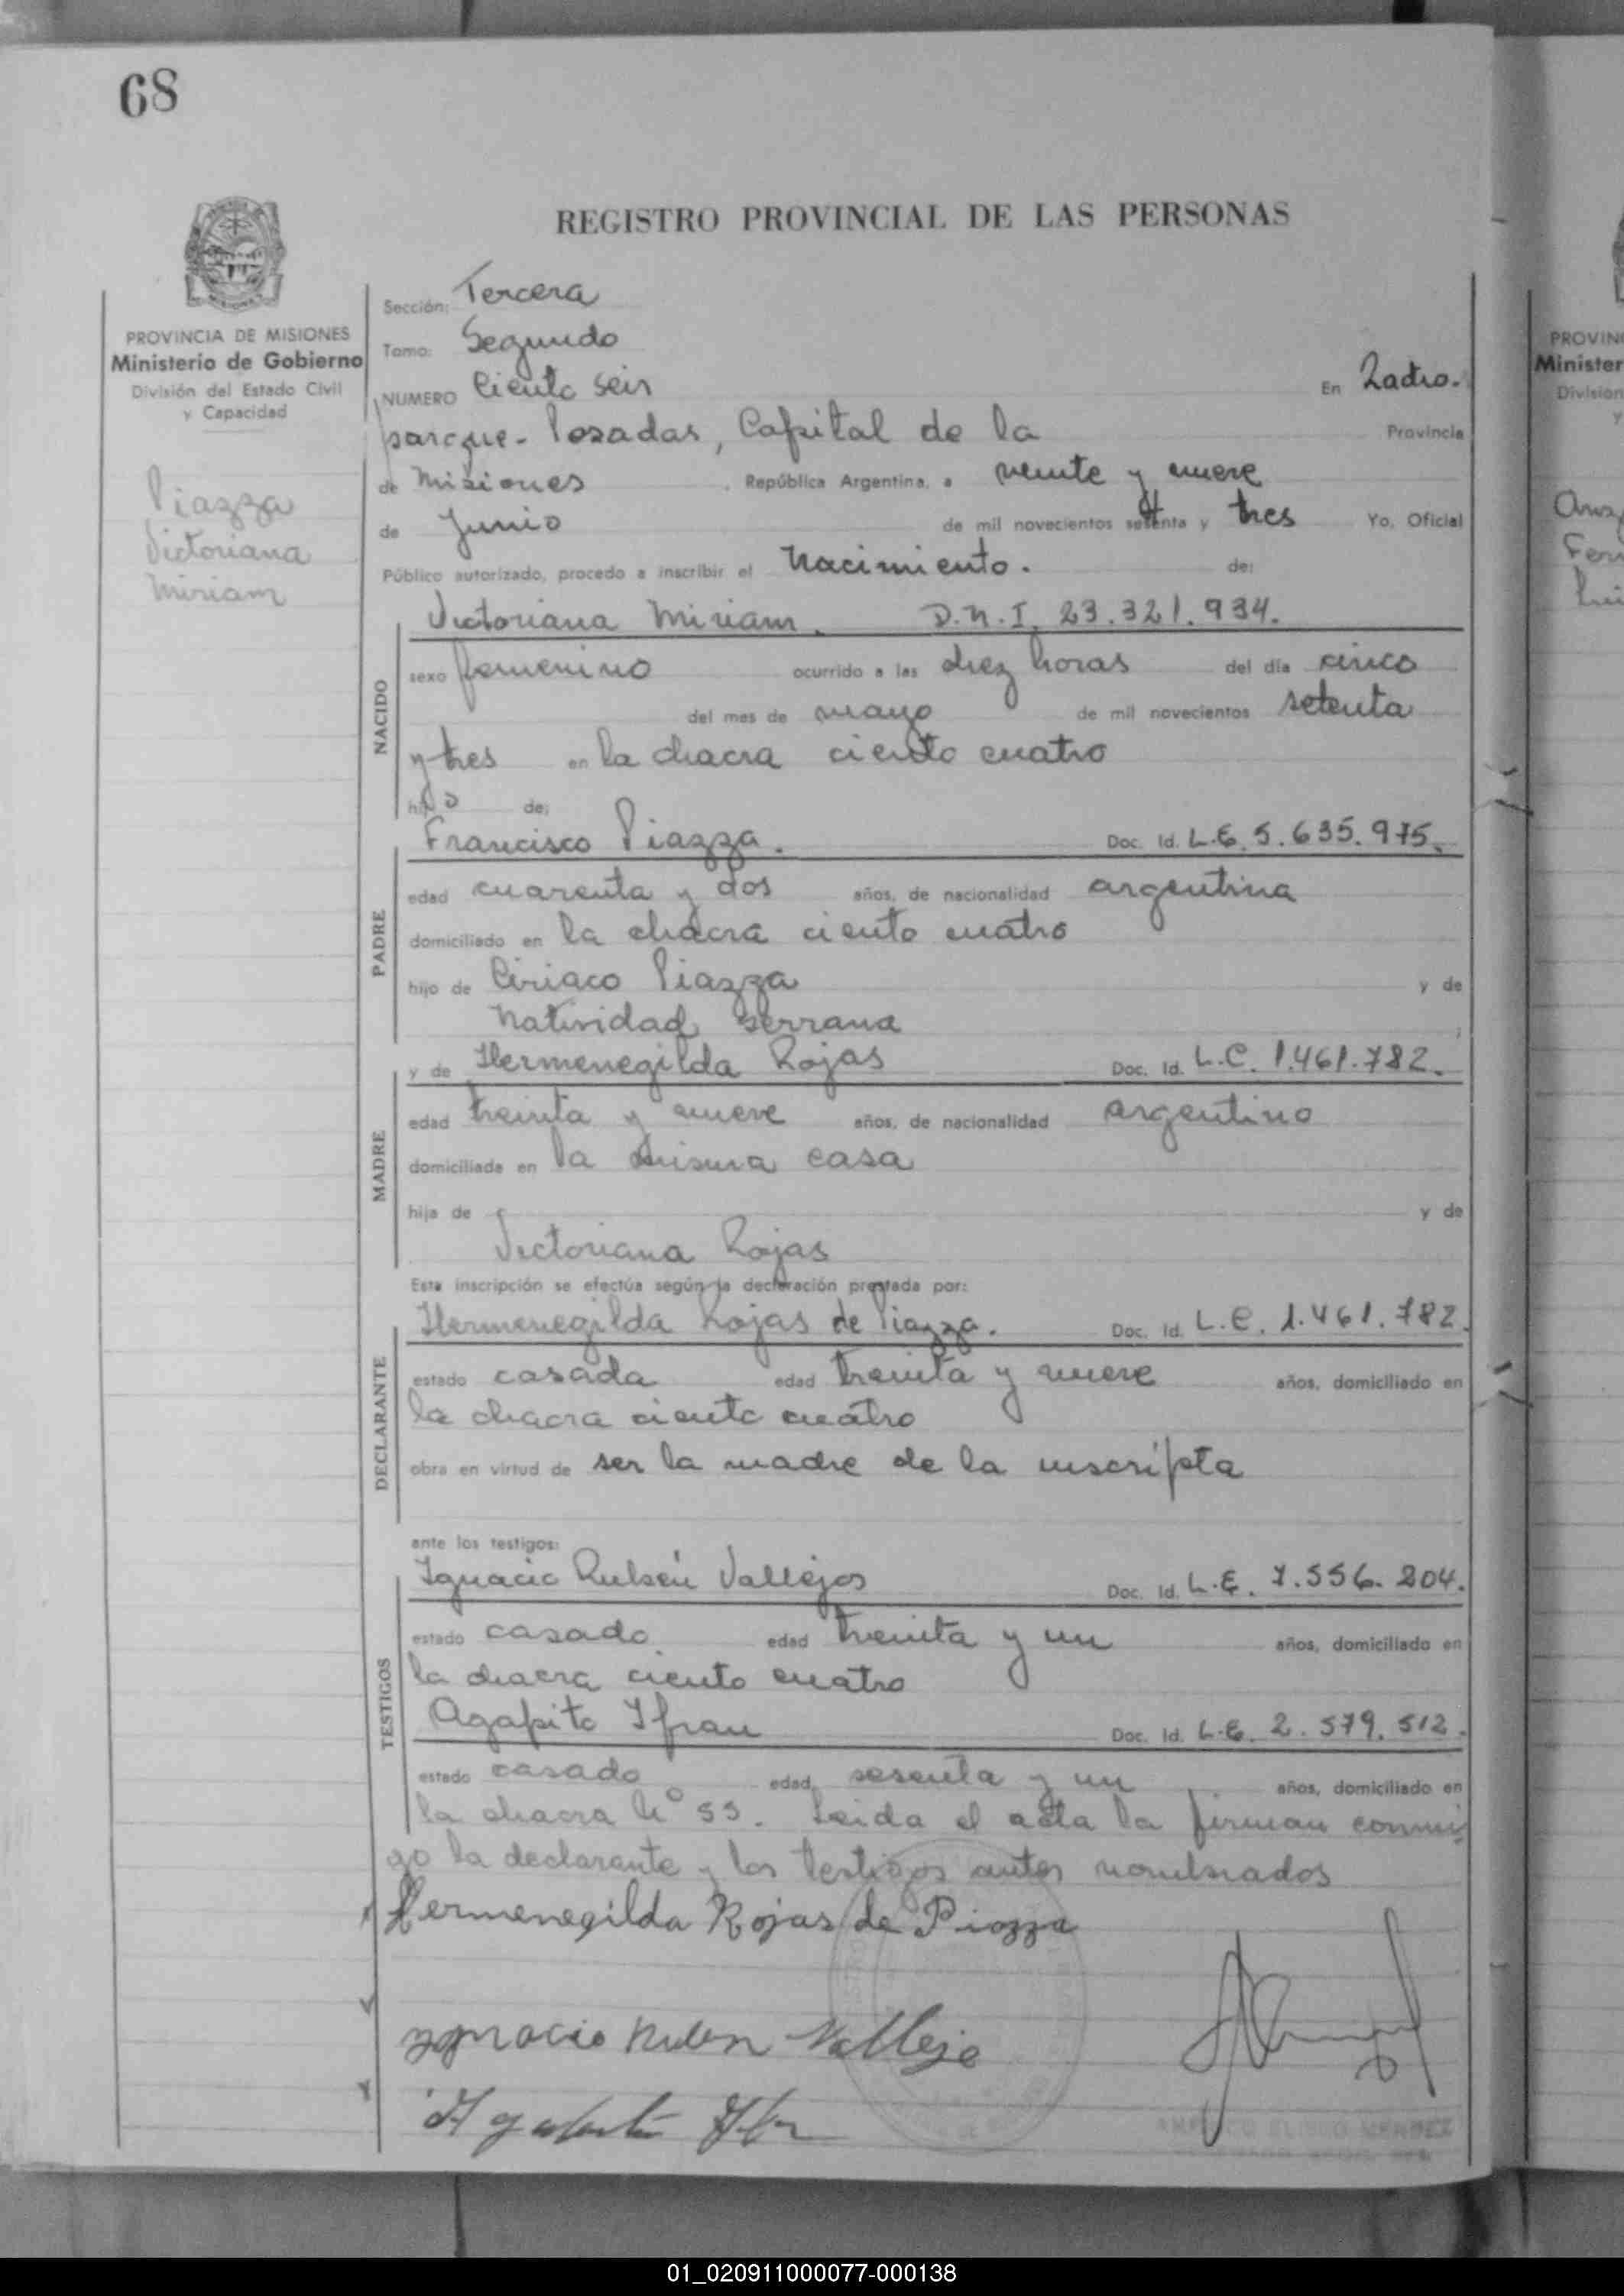 68
REGISTRO PROVINCIAL DE LAS PERSONAS
PROVINCIA DE MISIONES
Ministerio de Gobierno
División del Estado Civil
y Capacidad
Piazza
Victoriana
Miriam
Sección: Tercera
Tomo: Segundo
NUMERO Ciento seis En
parque - Posadas, Capital de la Provincia
de Misiones , República Argentina, a veinte y nueve
de Junio de mil novecientos setenta y tres Yo, Oficial
Público autorizado, procedo a inscribir el Nacimiento. de:
Victoriana Miriam. D.N.I. 23.321.934.
NACIDO
sexo femenino ocurrido a las diez horas del día cinco
del mes de mayo de mil novecientos setenta
y tres en la chacra ciento cuatro
hija de:
Francisco Piazza. Doc. Id. L.E. 5.635.975.
PADRE
edad cuarenta y dos años, de nacionalidad argentina
domiciliado en la chacra ciento cuatro
hijo de Ciriaco Piazza y de
Natividad Serrana ;
y de Hermenegilda Rojas Doc. Id. L.C. 1.461.782.
MADRE
edad treinta y nueve años, de nacionalidad argentina
domiciliada en la misma casa
hija de y de
Victoriana Rojas
Esta inscripción se efectúa según la declaración prestada por:
Hermenegilda Rojas de Piazza. Doc. Id. L.C. 1.461.782.
DECLARANTE
estado casada edad treinta y nueve años, domiciliado en
la chacra ciento cuatro
obra en virtud de ser la madre de la inscripta
ante los testigos:
Ignacio Rubén Vallejos Doc. Id. L.E. 7.556.204.
TESTIGOS
estado casado edad treinta y un años, domiciliado en
la chacra ciento cuatro
Agapito Ifran Doc. Id. L.E. 2.579.512.
estado casado edad sesenta y un años, domiciliado en
la chacra Nº 55. Leida el acta la firman conmi
go la declarante y los testigos antes nombrados
Hermenegilda Rojas de Piazza
Ignacio Ruben Vallejo
PROVIN
Minister
Division
01_020911000077-000138